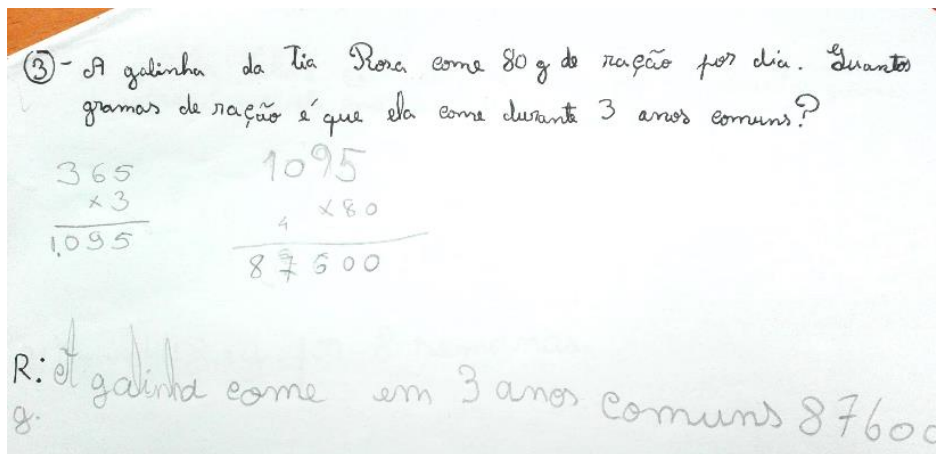 ③- A galinha da Tia Rosa come 80 g de ração por dia. Quantos
gramas de ração é que ela come durante 3 anos comuns?
365
× 3
1.095
1095
× 80
4
87600
R: A galinha come em 3 anos comuns 87600
g.